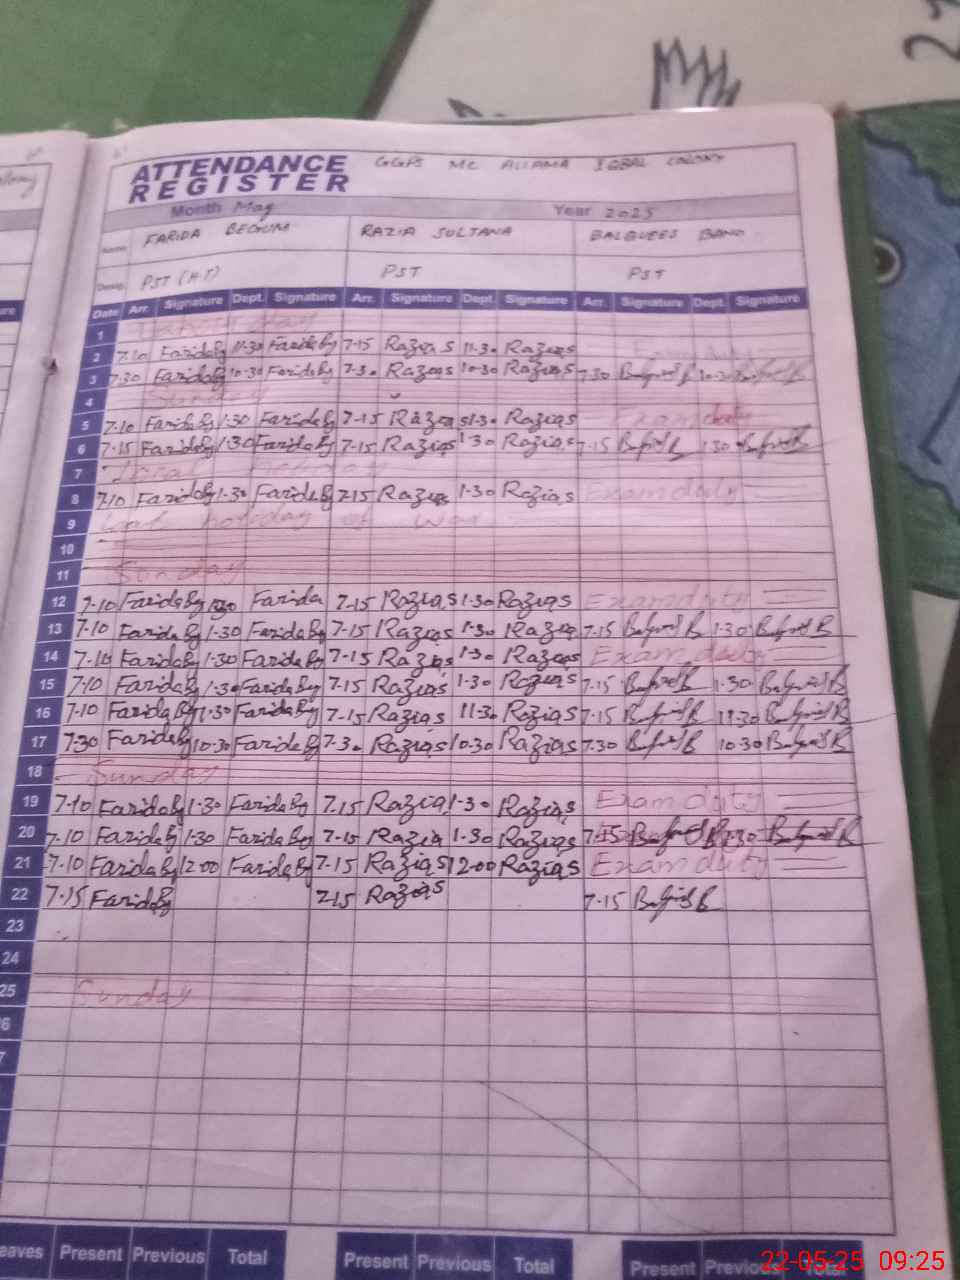 ATTENDANCE REGISTER GGPS MC ALLAMA IQBAL COLONY
Month May Year 2025
Name FARIDA BEGUM RAZIA SULTANA BALQUEES BANO
Desig. PST (H.T) PST PST
Date Arr. Signature Dept. Signature Arr. Signature Dept. Signature Arr. Signature Dept. Signature
1 Labour Day
2 7.10 Farida By 11.30 Farida By 7-15 Razia S 11.30 Razia S
3 7.30 Farida By 10.30 Farida By 7.30 Razia S 10.30 Razia S 7.30 10.30
4 Sunday
5 7.10 Farida By 1.30 Farida By 7-15 Razia S 1.30 Razia S Exam duty
6 7.15 Farida By 1.30 Farida By 7-15 Razia S 1.30 Razia S 7.15 1.30
7 Local Holiday
8 7.10 Farida By 1.30 Farida By 7.15 Razia S 1.30 Razia S Exam duty
9 holiday of war
10
11 Sunday
12 7.10 Farida By 1.30 Farida 7.15 Razia S 1.30 Razia S Exam duty
13 7.10 Farida By 1.30 Farida By 7.15 Razia S 1.30 Razia S 7.15 1.30
14 7.10 Farida By 1.30 Farida By 7.15 Razia S 1.30 Razia S Exam duty
15 7.10 Farida By 1.30 Farida By 7.15 Razia S 1.30 Razia S 7.15 1.30
16 7.10 Farida By 1.30 Farida By 7.15 Razia S 11.30 Razia S 7.15 11.30
17 7.30 Farida By 10.30 Farida By 7.30 Razia S 10.30 Razia S 7.30 10.30
18 Sunday
19 7.10 Farida By 1.30 Farida By 7.15 Razia 1.30 Razia S Exam duty
20 7.10 Farida By 1.30 Farida By 7.15 Razia 1.30 Razia S 7.15 1.30
21 7.10 Farida By 12.00 Farida By 7.15 Razia S 12.00 Razia S Exam duty
22 7.15 Farida By 7.15 Razia S 7.15
23
24
25 Sunday
Leaves Present Previous Total Present Previous Total Present Previous Total
22-05-25 09:25